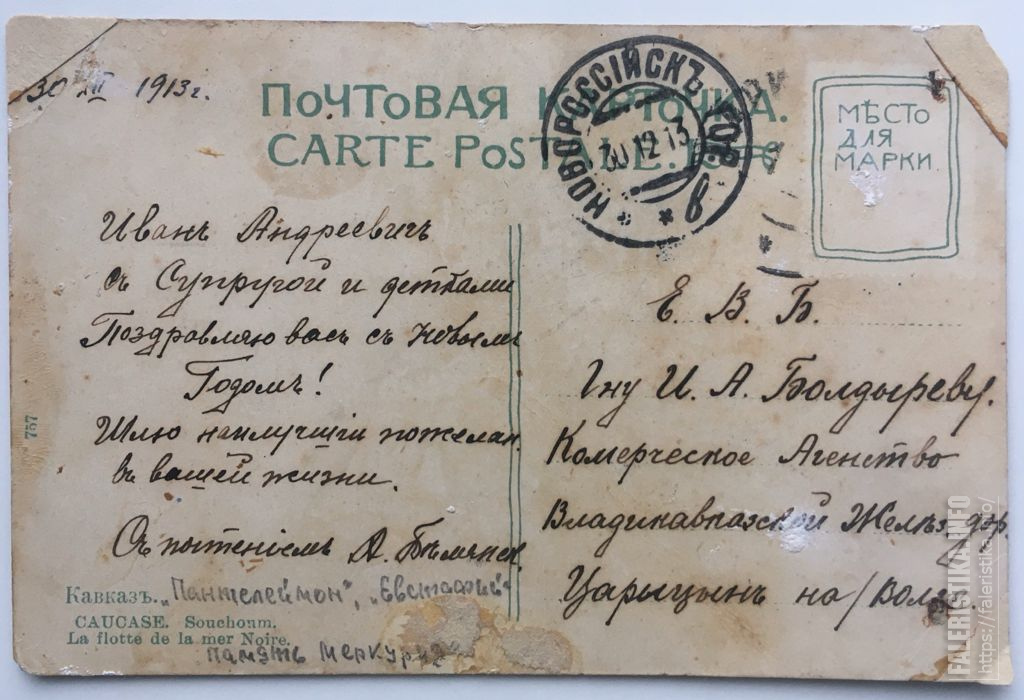 30 XII 1913 г.
ПОЧТОВАЯ КАРТОЧКА.
CARTE POSTALE.
НОВОРОССІЙСКЪ
30 12 13
МѢСТО
ДЛЯ
МАРКИ
Иванъ Андреевичъ
съ Супругой и детками
Поздравляю васъ съ Новымъ
Годомъ!
Шлю наилучшія пожелан.
въ вашей жизни.
Съ почтеніемъ А.
Е. В. Б.
Гну И. А. Болдыреву.
Комерческое Агенство
Владикавказской Желѣз. дор.
Царицынъ на/Волге.
757
Кавказъ. „Пантелеймон", „Евстафий"
CAUCASE. Souchoum.
La flotte de la mer Noire.
Память Меркурия
FALERISTIKA.INFO
https://faleristika.info/